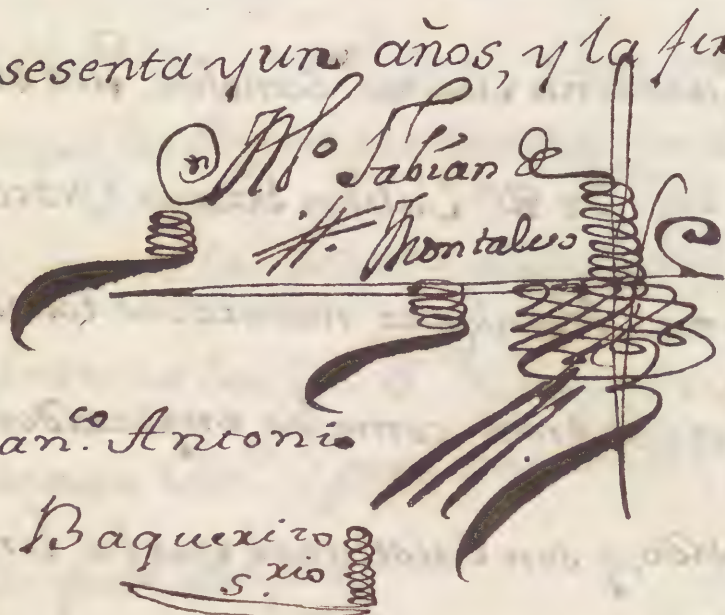 sesenta y un años, y la fir
Fabían de
Montalvo
an.co Antonio
Baquerizo
s.rio